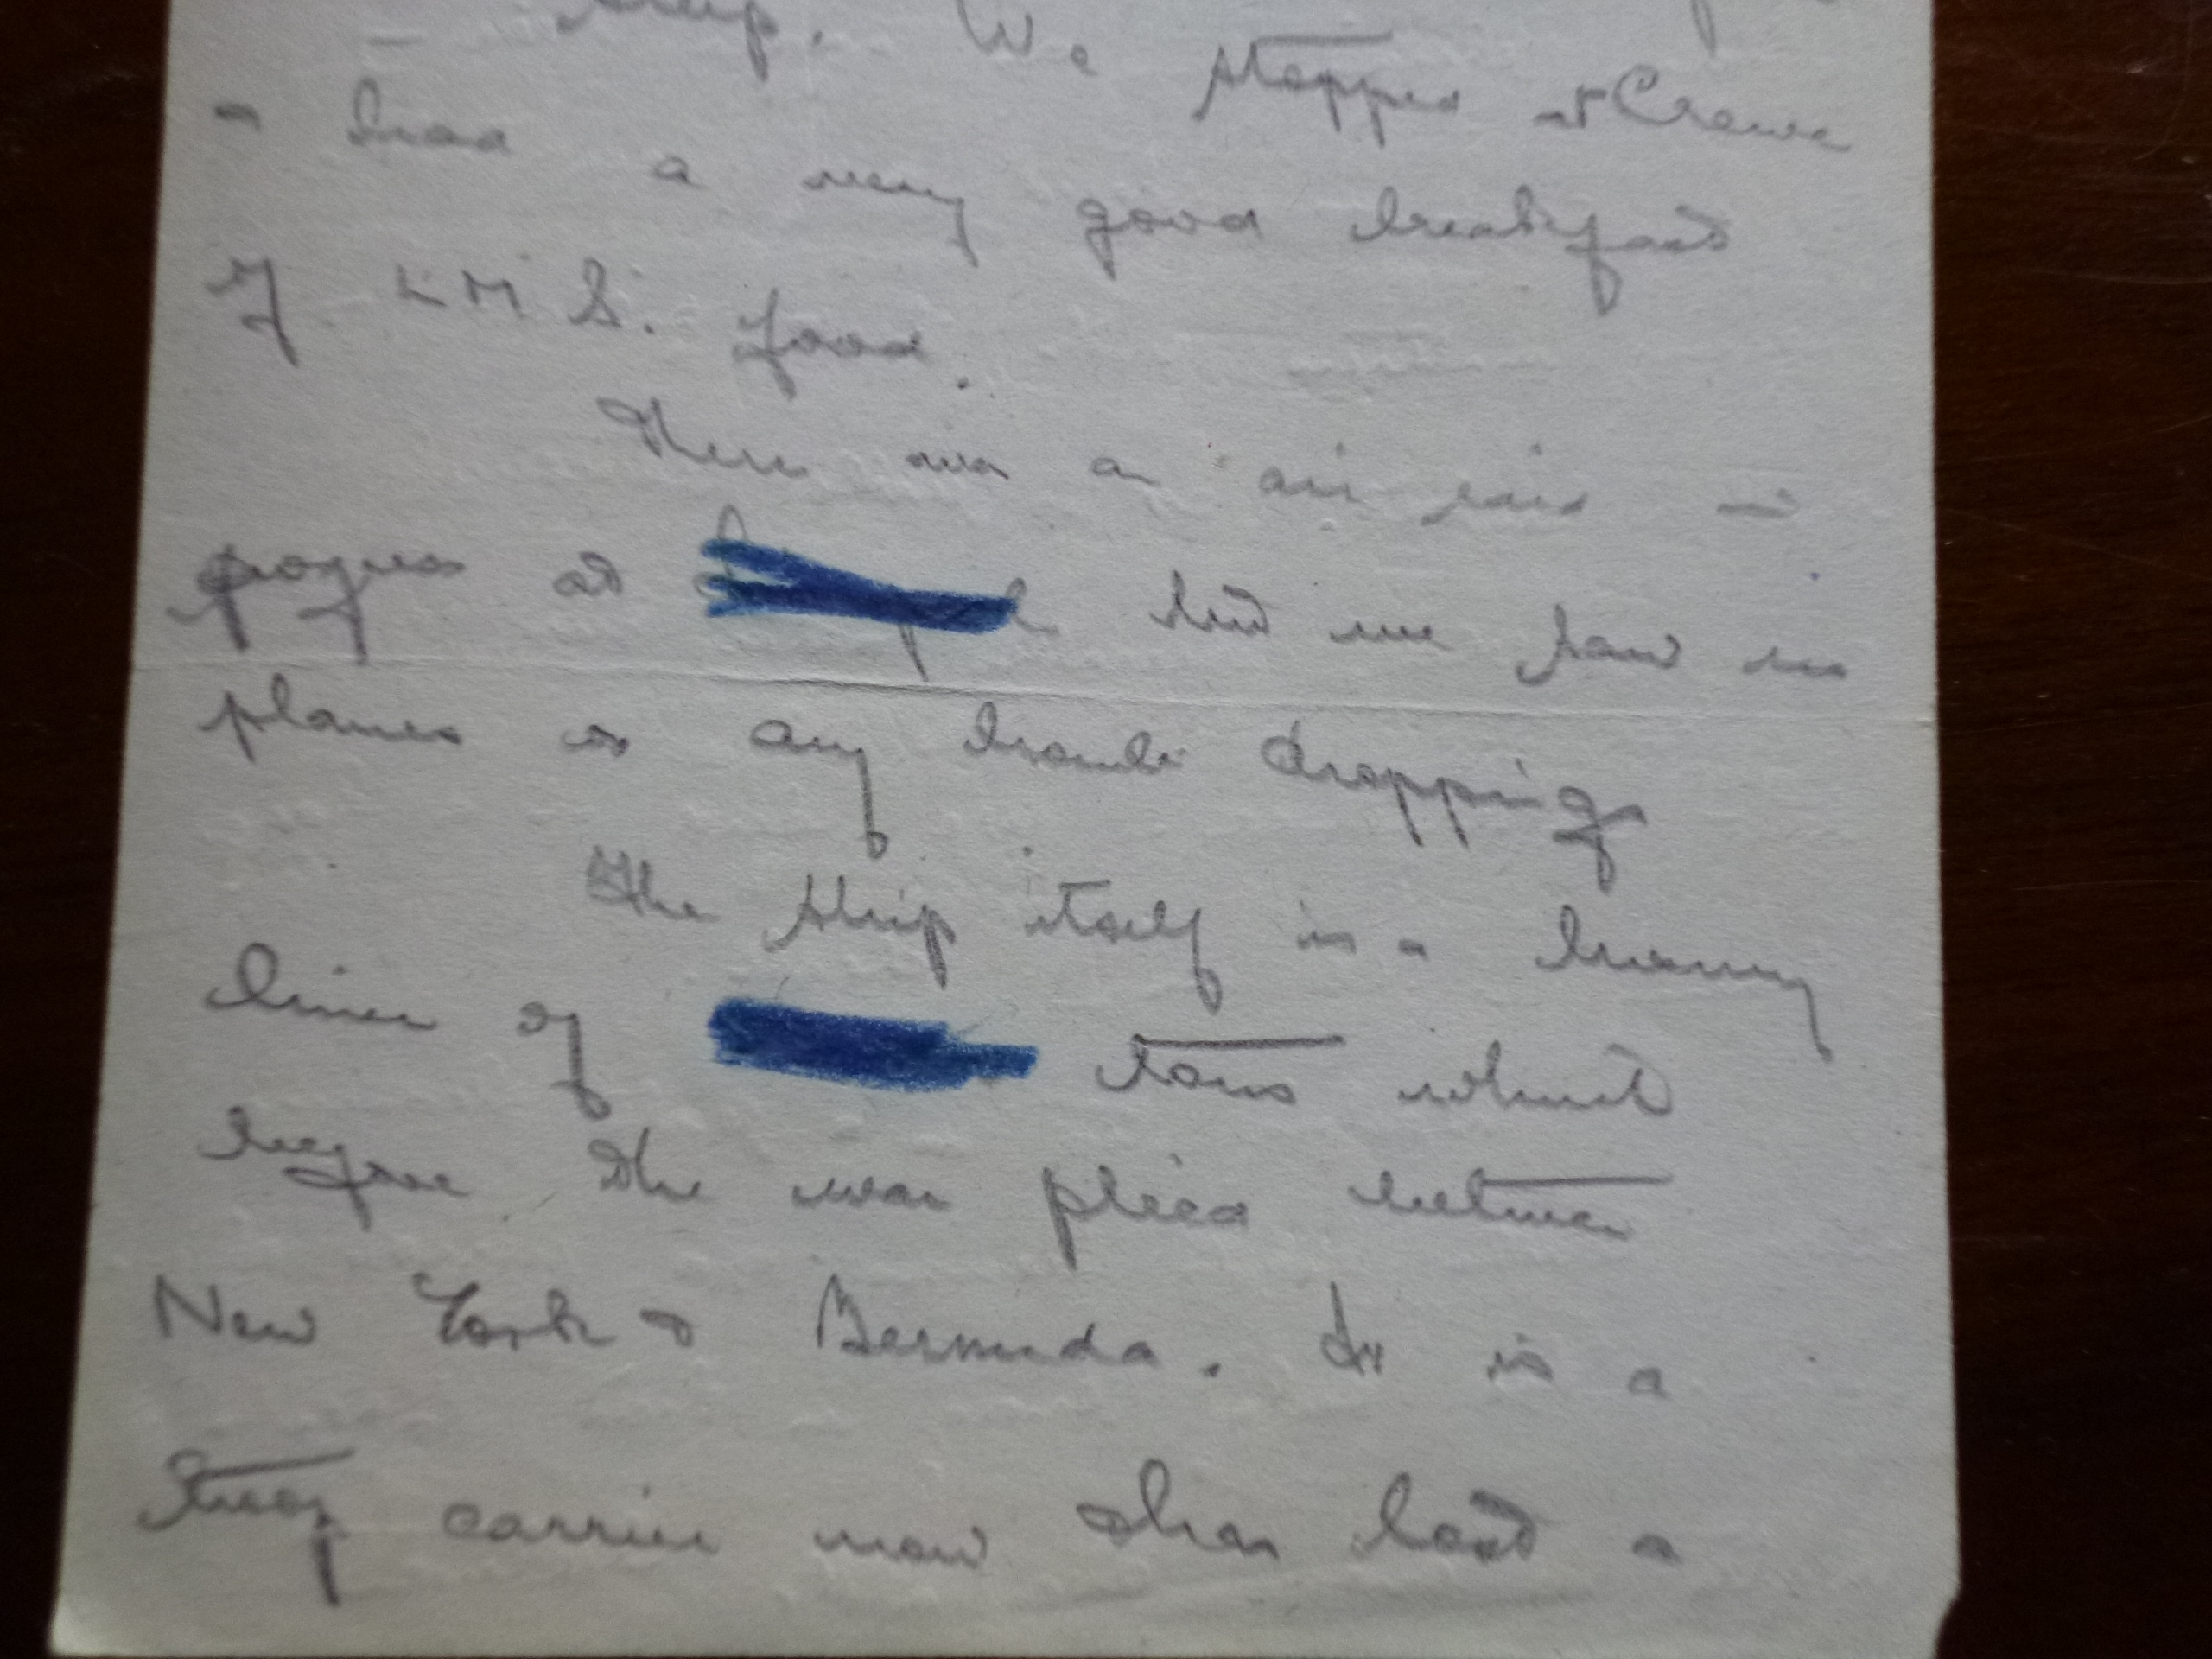 ship. We stopped at Crewe
& had a very good breakfast
of L M S. food.
There was an air raid in
progress at but we saw no
planes or any bombs dropping
The ship itself is a luxury
liner of tons which
before the war plied between
New York & Bermuda. It is a
troop carrier now & has lost a